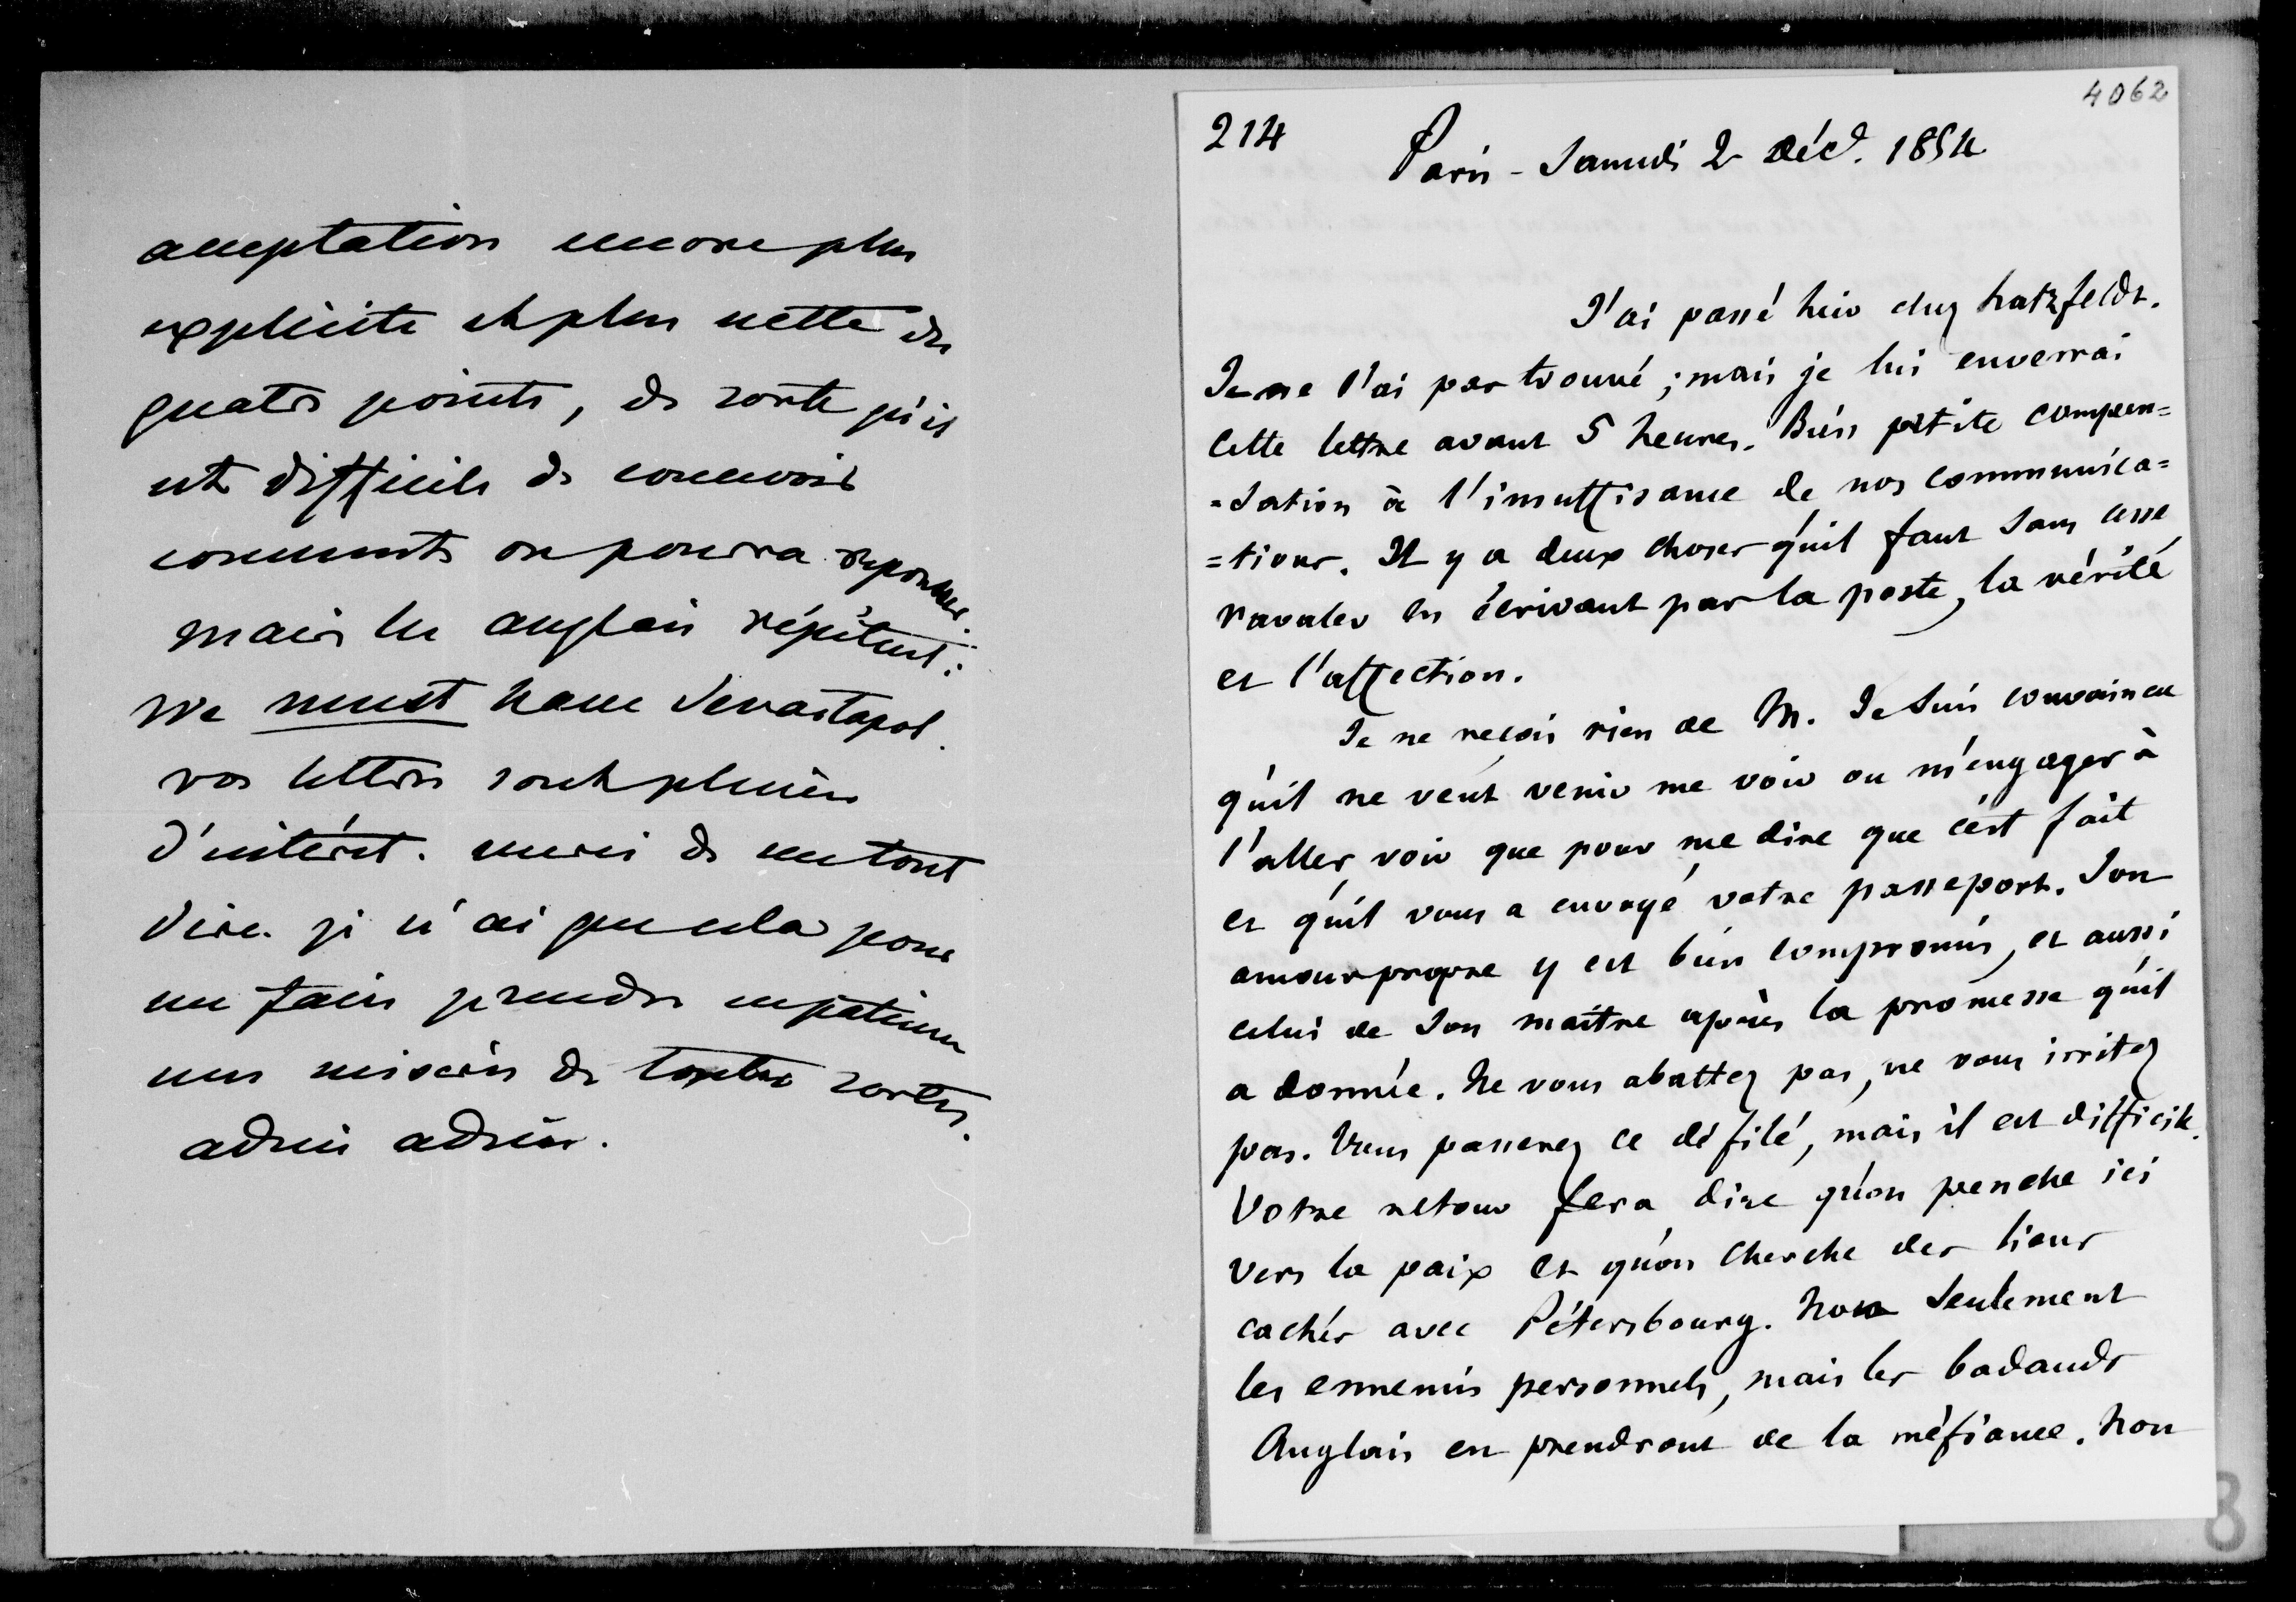 acceptation encore plus
explicite et plus nette des
quatre points, de sorte qu'il
est difficile de concevoir
comment on pourra reponsser.
mais les anglais répètent :
we must have Sevastopol.
vos lettres sont pleines
d'intérêt. merci de me tout
dire. je n'ai que cela pour
me faire prendre en patience
mes misères de toutes sortes.
adieu adieu.
4062
214
Paris - Samedi 2 Déc. 1854
J'ai passé hier chez hatzfeldt.
Je ne l'ai pas trouvé ; mais je lui enverrai
cette lettre avant 5 heures. Bien petite compen=
=sation à l'insuffisance de nos communica=
=tions. Il y a deux choses qu'il faut sans cesse
ravaler en écrivant par la poste, la vérité
et l'affection.
Je ne reçois rien de M. Je suis convaincu
qu'il ne veut venir me voir ou m'engager à
l'aller voir que pour me dire que c'est fait
et qu'il vous a envoyé votre passeport. Son
amour propre y est bien compromis, et aussi
celui de son maître après la promesse qu'il
a donnée. Ne vous abattez pas, ne vous irritez
pas. Vous passerez ce défilé, mais il est difficile.
Votre retour fera dire qu'on penche ici
vers la paix et qu'on cherche des liens
cachés avec Pétersbourg. Non seulement
les ennemis personnels, mais les badauds
Anglais en prendront de la méfiance. Non
8